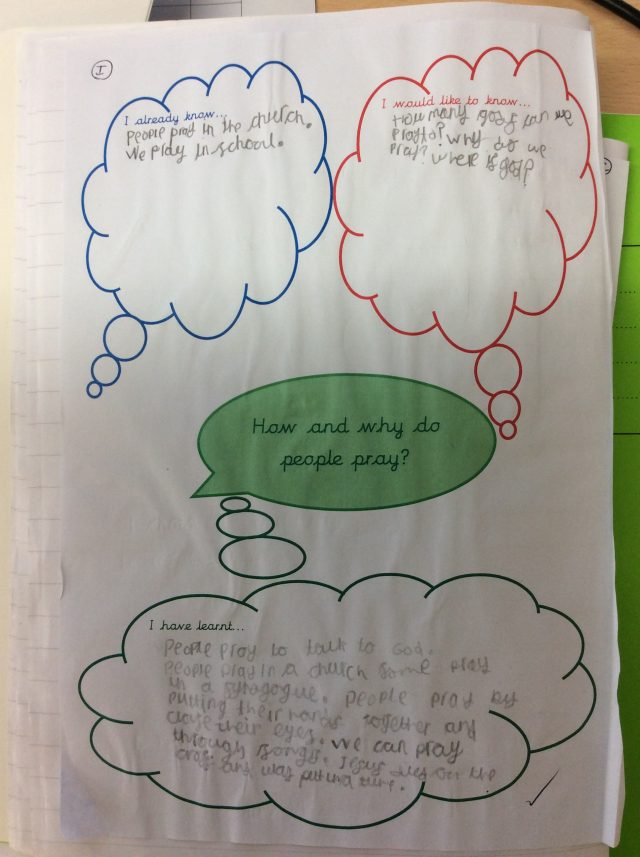 I
I already know...
People pray in the church.
We pray in school.
I would like to know...
How many gods can we
pray to? why do we
pray? where is god?
How and why do
people pray?
I have learnt...
People pray to talk to God.
People pray in a church some pray
in a synagogue. people pray by
putting their hands together and
close their eyes. we can pray
through songs. Jesus dies on the
cross and was put in a